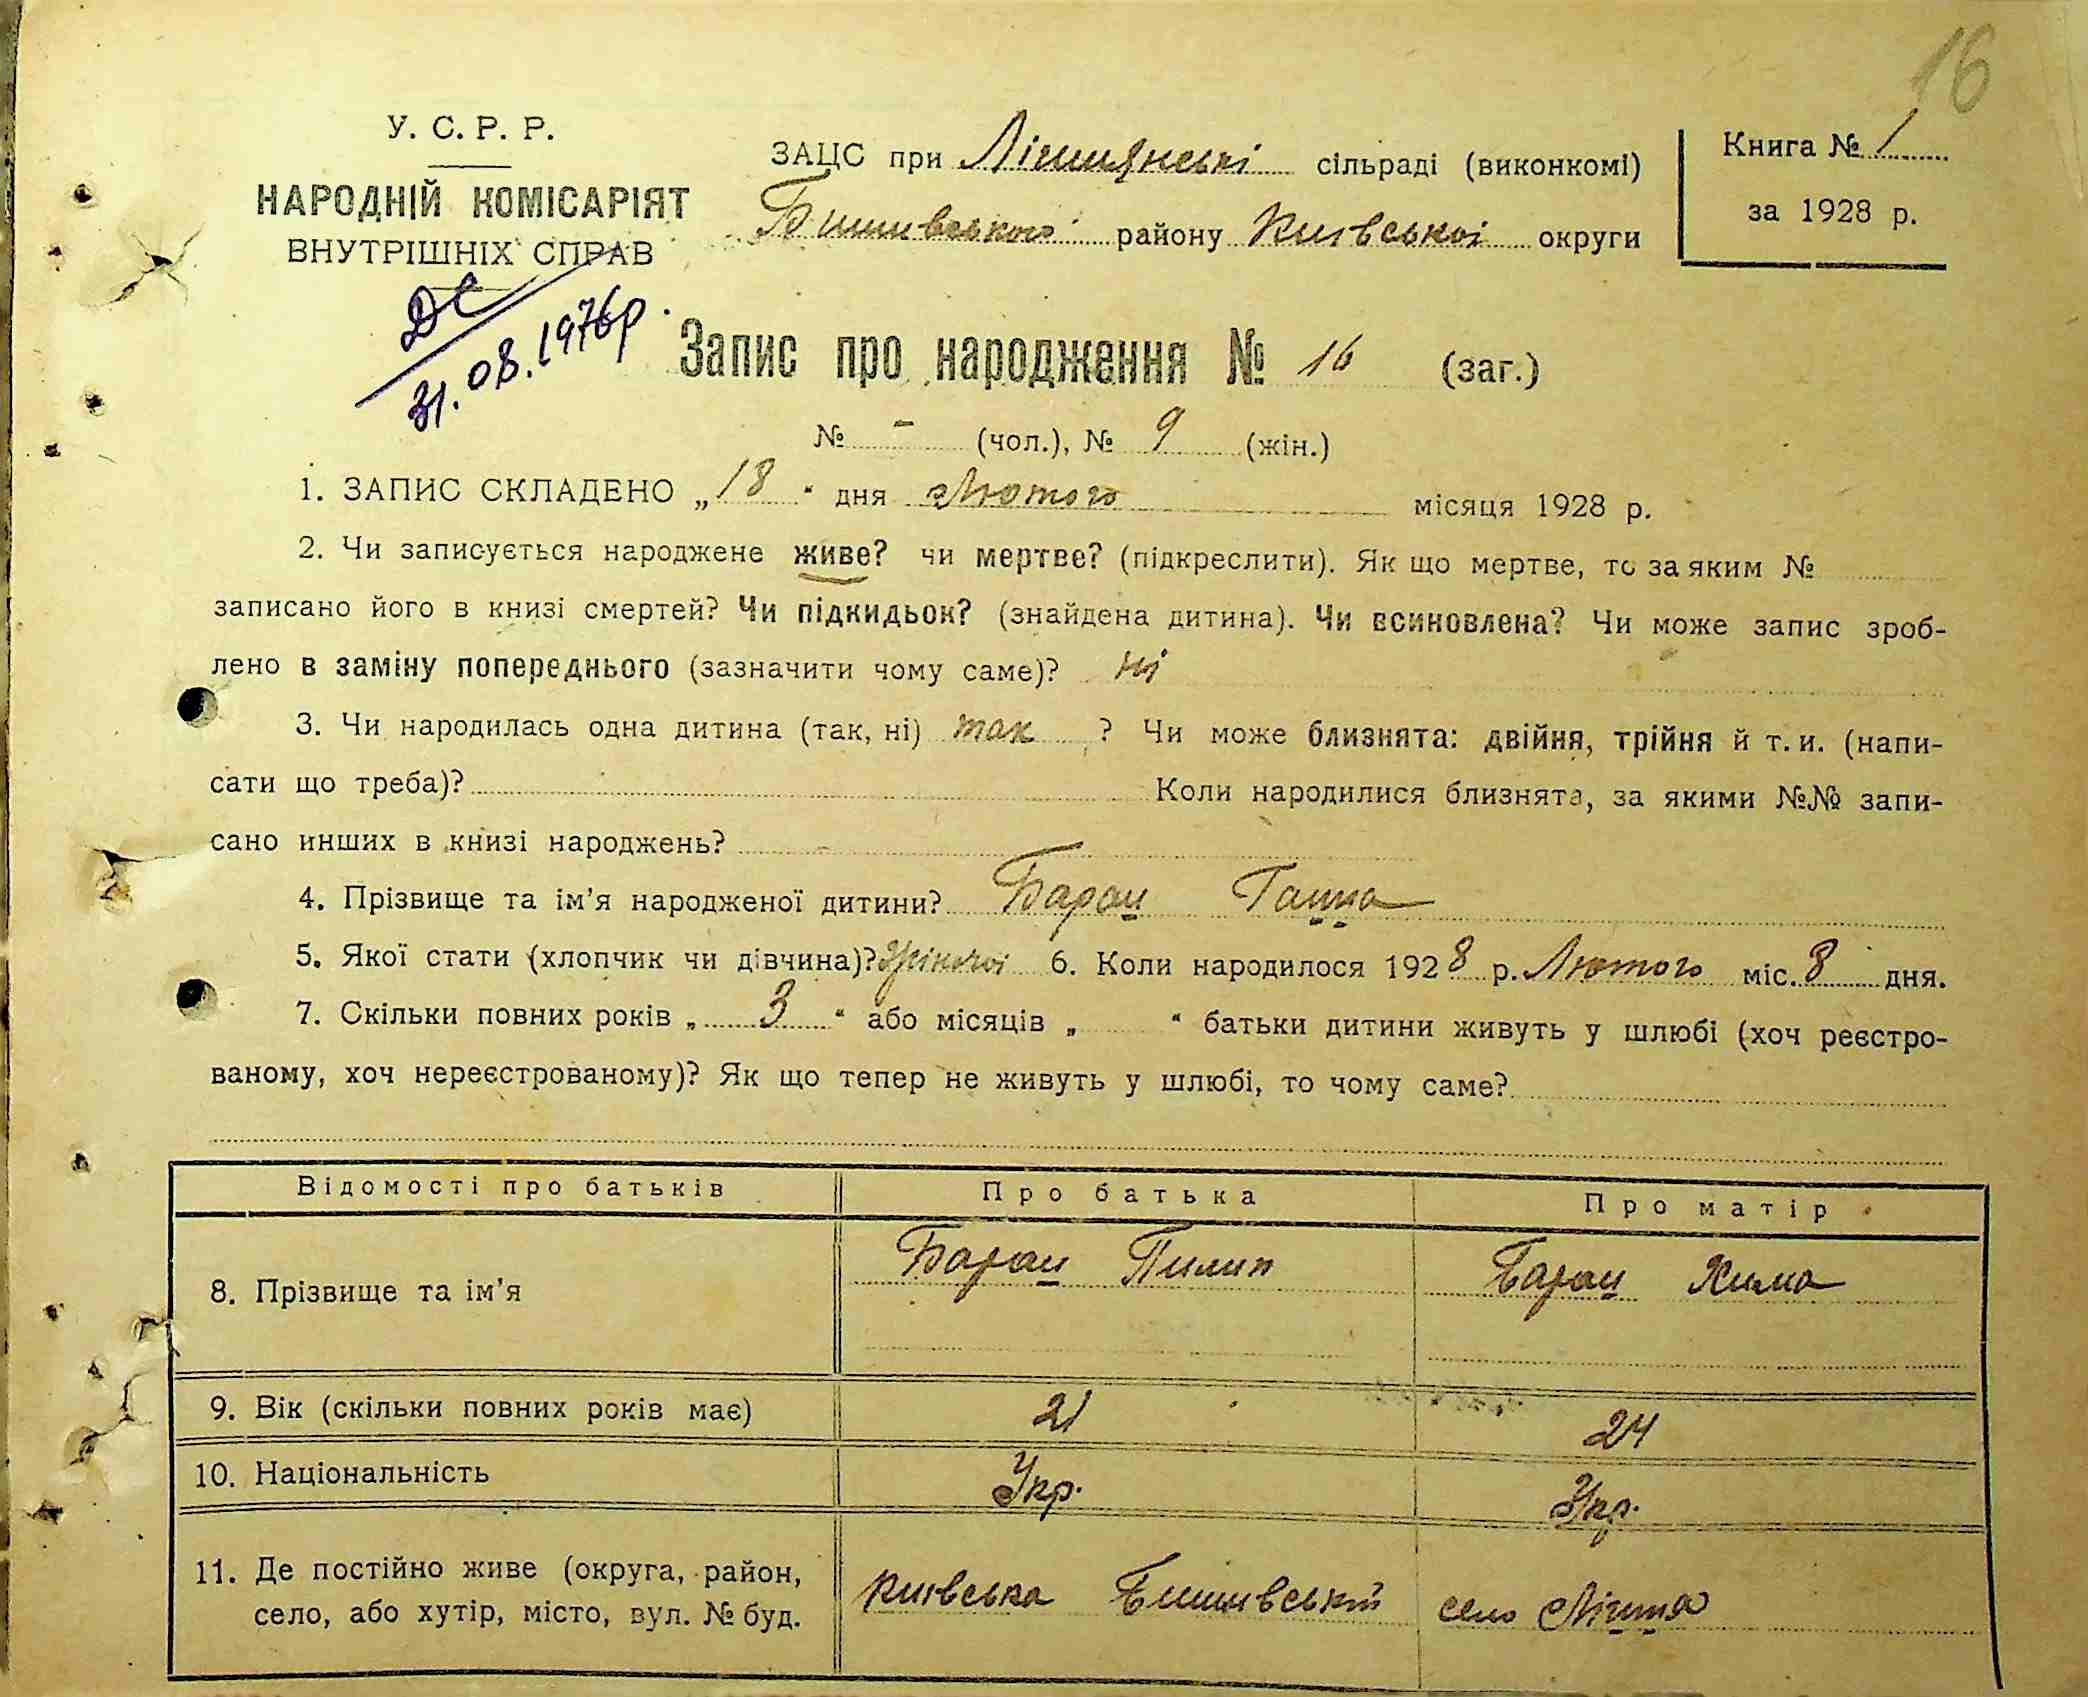 16
У. С. Р. Р.
НАРОДНІЙ КОМІСАРІЯТ
ВНУТРІШНІХ СПРАВ
ДС
31.08.1976р.
ЗАЦС при Лішнянські сільраді (виконкомі)
Бишівського району Київської округи
Книга № 1
за 1928 р.
Запис про народження № 16 (заг.)
№ - (чол.), № 9 (жін.)
1. ЗАПИС СКЛАДЕНО „18“ дня Лютого місяця 1928 р.
2. Чи записується народжене живе? чи мертве? (підкреслити). Як що мертве, то за яким №
записано його в книзі смертей? Чи підкидьок? (знайдена дитина). Чи всиновлена? Чи може запис зроб-
лено в заміну попереднього (зазначити чому саме)? ні
3. Чи народилась одна дитина (так, ні) так ? Чи може близнята: двійня, трійня й т. и. (напи-
сати що треба)? Коли народилися близнята, за якими №№ запи-
сано инших в книзі народжень?
4. Прізвище та ім'я народженої дитини? Баран Ганна
5. Якої стати (хлопчик чи дівчина)? жіночої 6. Коли народилося 1928 р. Лютого міс. 8 дня.
7. Скільки повних років „3“ або місяців „ “ батьки дитини живуть у шлюбі (хоч реєстро-
ваному, хоч нереєстрованому)? Як що тепер не живуть у шлюбі, то чому саме?
Відомості про батьків Про батька Про матір
8. Прізвище та ім'я Баран Пилип Баран Хима
9. Вік (скільки повних років має) 21 24
10. Національність Укр. Укр.
11. Де постійно живе (округа, район,
село, або хутір, місто, вул. № буд. Київська Бишівський село Лішня